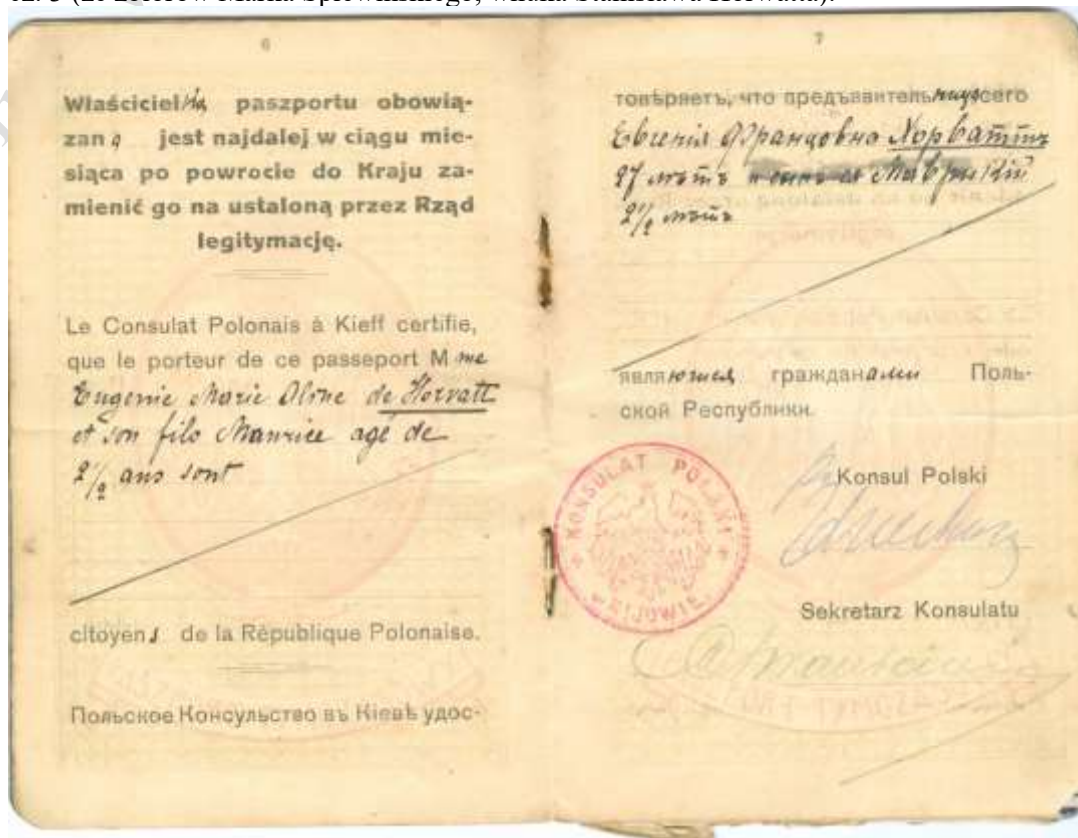 cz. 3 (ze zbiorów Marka Śpiewińskiego, wnuka Stanisława Horwatta).
6
Właścicielka paszportu obowią-
zaną jest najdalej w ciągu mie-
siąca po powrocie do Kraju za-
mienić go na ustaloną przez Rząd
legitymację.
Le Consulat Polonais à Kieff certifie,
que le porteur de ce passeport Mme
Eugenie Marie Aline de Horvatt
et son fils Maurice agé de
2 1/2 ans sont
citoyens de la République Polonaise.
Польское Консульство въ Кіевѣ удос-
7
товѣряетъ, что предъявительницa сего
Евгенія Францовна Хорваттъ
27 лѣтъ и сынъ ея Маврикій
2 1/2 лѣтъ
являющися гражданами Поль-
ской Республики.
KONSULAT POLSKI
W KIJOWIE
Konsul Polski
Sekretarz Konsulatu